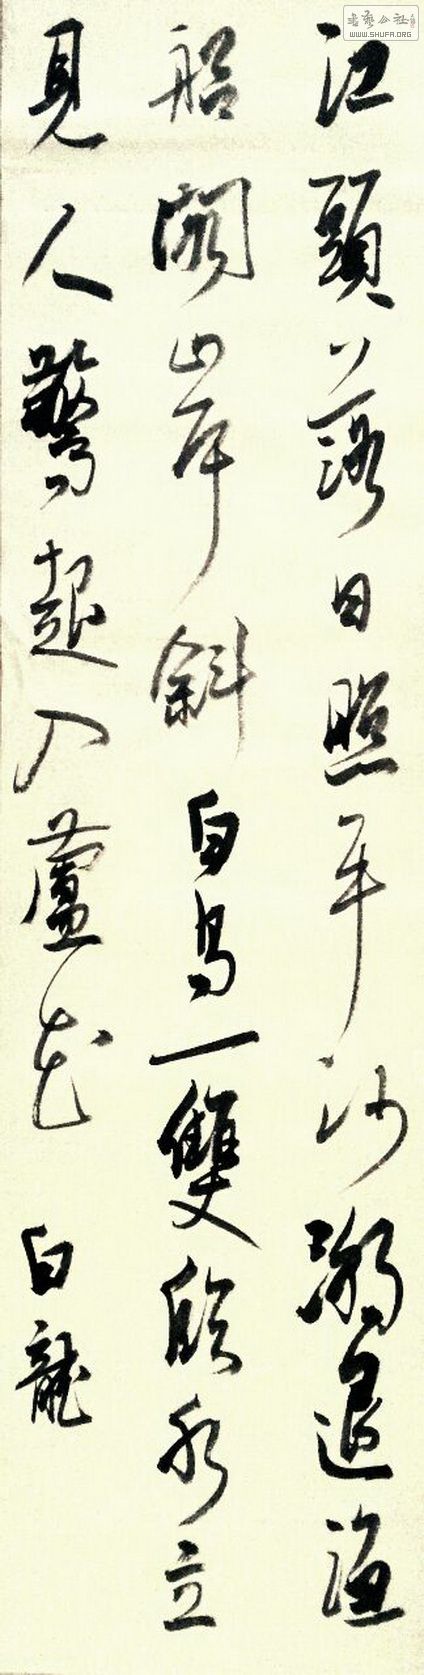 江頭落日照平沙潮退漁
船閣岸斜白鳥一雙臨水立
見人驚起入蘆花 白龍
書藝公社
WWW.SHUFA.ORG